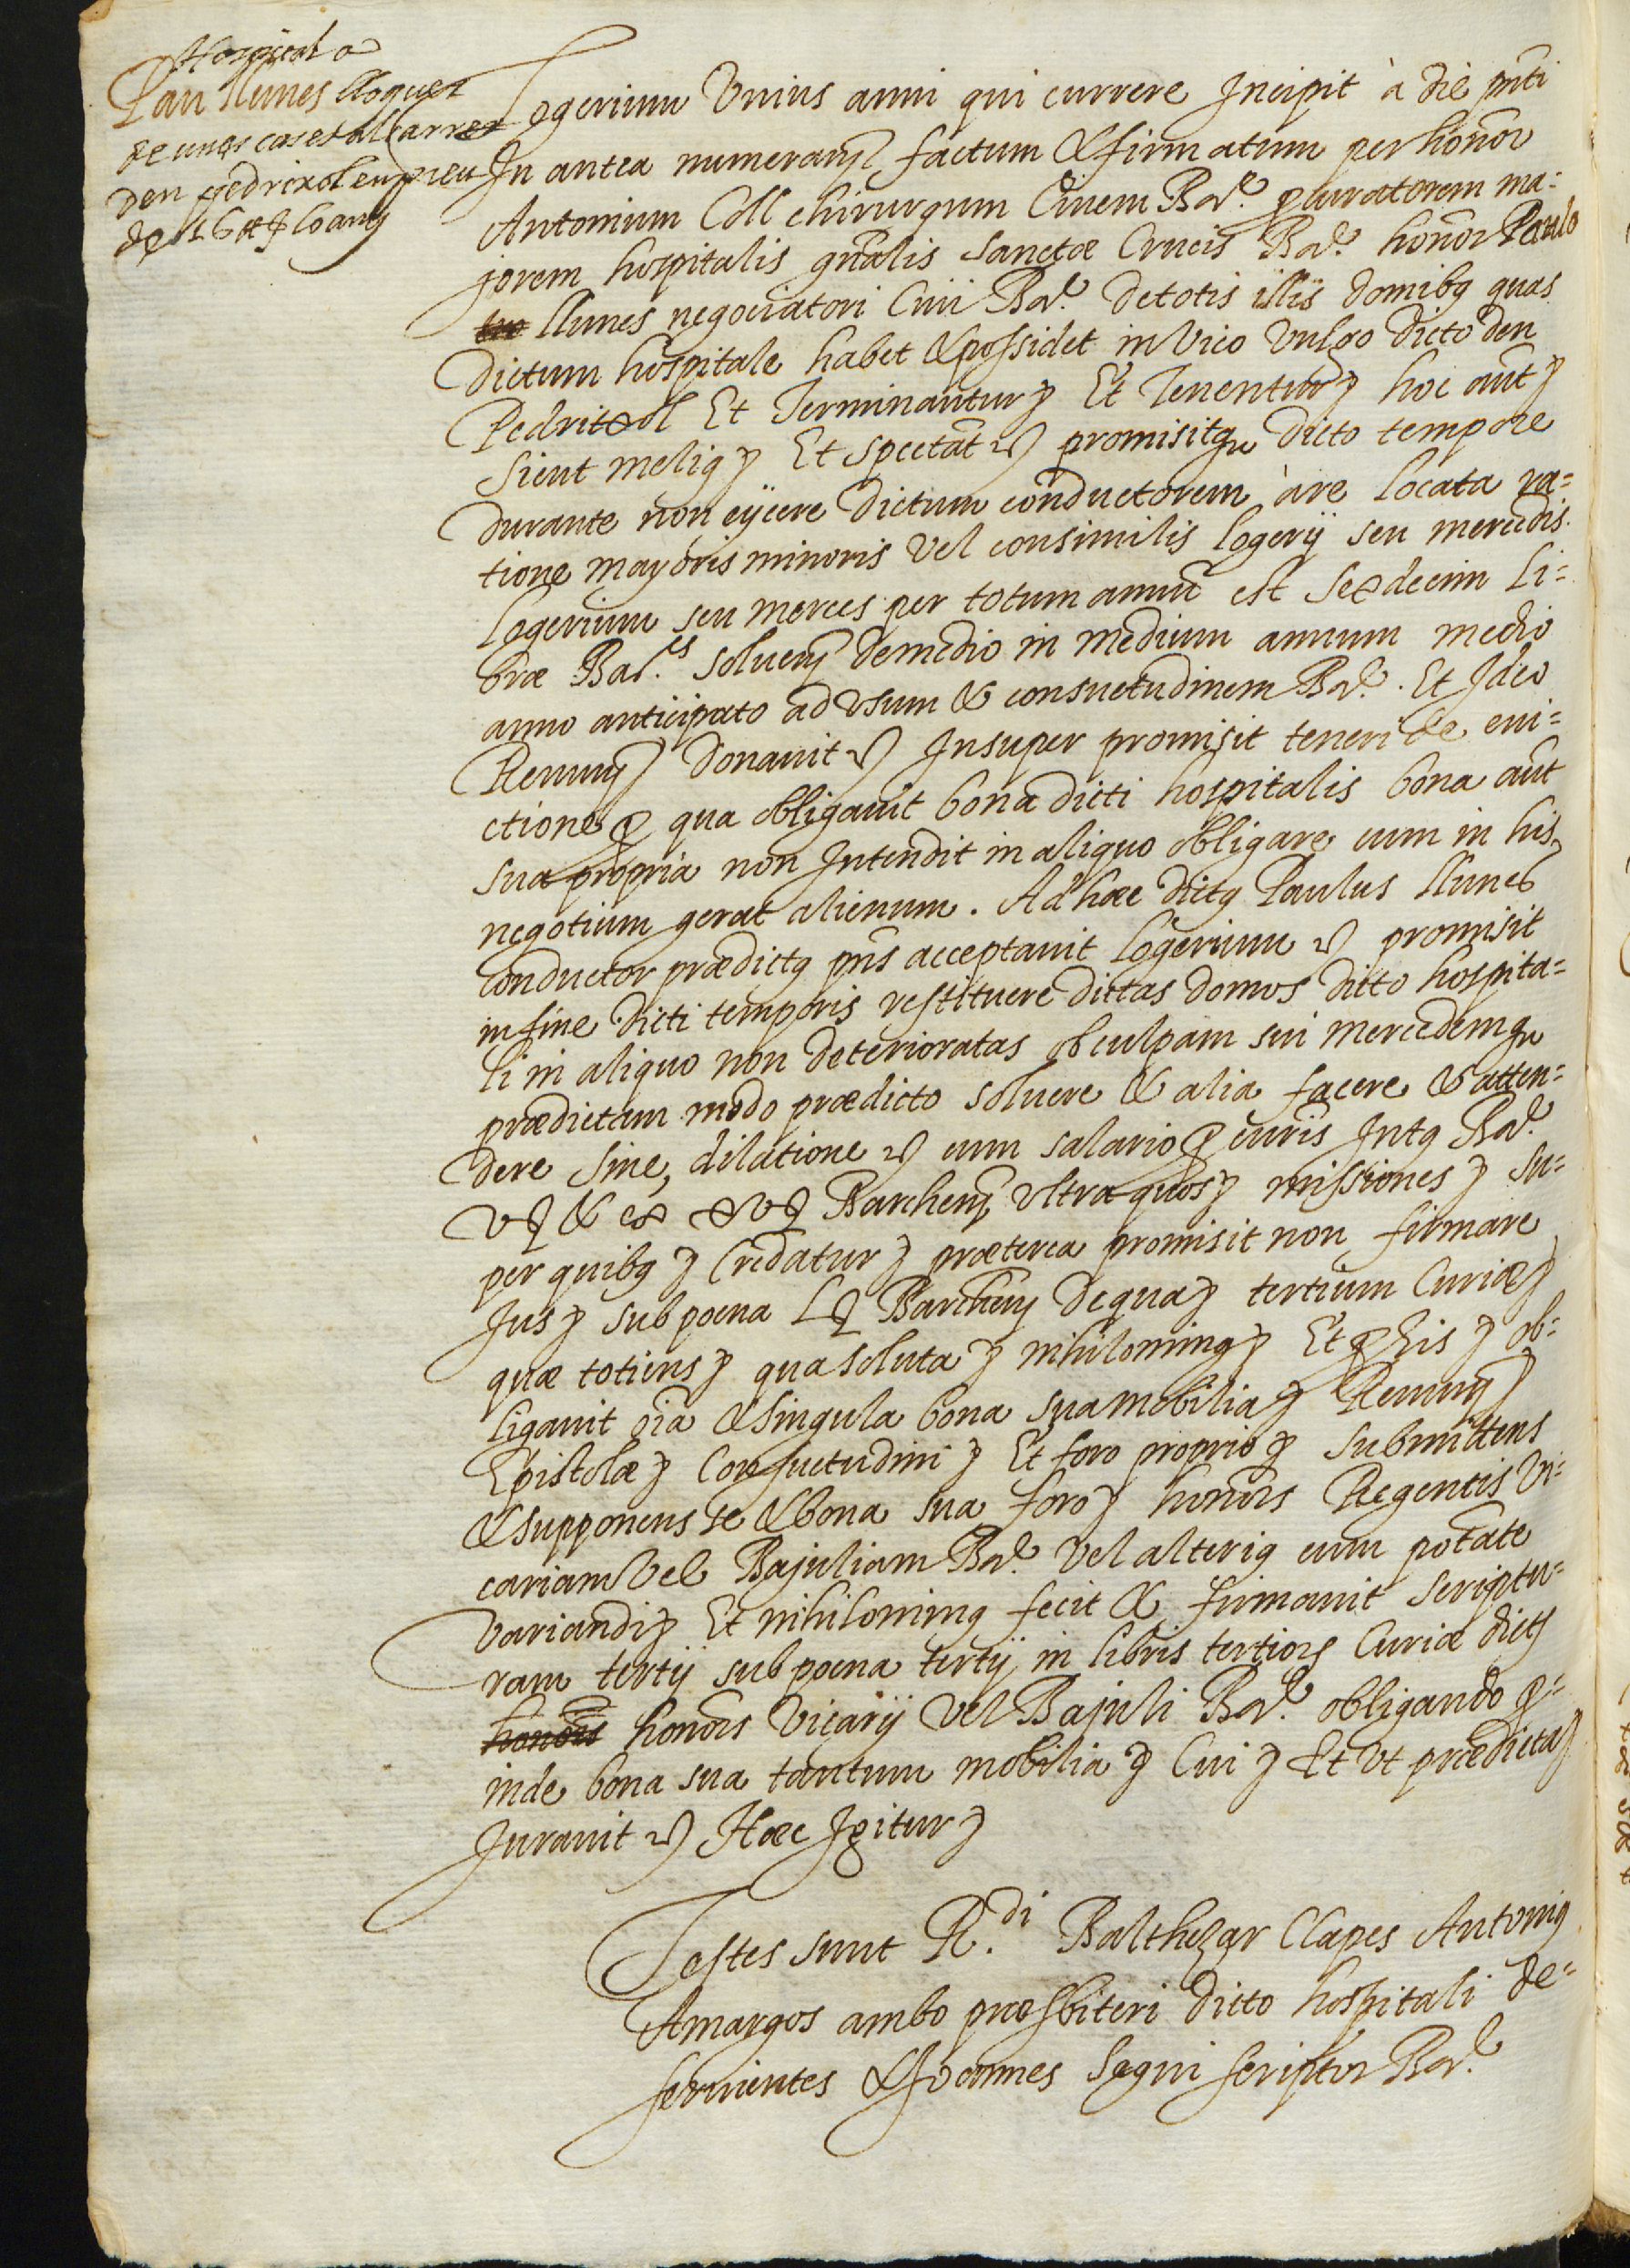 Hospital a
Pau llunes lloguer
de unes cases al carrer
den pedrixol en preu
de 16 ll ꝑ lo any
Logerium Vnius anni qui currere Incipit à die pñti
In antea numerandꝫ factum & firmatum per honor
Antonium Coll chirurgum Ciuem Bar.ᵉ ꝓcuratorem ma=
jorem hospitalis gñalis sanctæ Crucis Bar.ᵉ honor Paulo
llunes negociatori Ciui Bar.ᵉ de totis illis domibꝰ quas
dictum hospitale habet & possidet in Vico vulgo dicto den
Pedritxol Et Terminantur ⁊ Et Tenentur ⁊ hoc aut̃ ⁊
sicut meliꝰ ⁊ Et spectat̃ ⁊ promisitqꝫ dicto tempore
durante non eijcere dictum conductorem à re locata ra=
tione mayoris minoris vel consimilis logerij seu mercedis.
Logerium seu merces per totum annũ est sexdecim li=
bræ Bar.ᵉˢ soluendꝫ de medio in medium annum medio
anno anticipato ad vsum & consuetudinem Bar.ᵉ. Et Ideo
Renunꝫ donauit ⁊ Insuper promisit teneri de eui=
ctione ꝓ qua obligauit bona dicti hospitalis bona aut̃
sua propria non Intendit in aliquo obligare cum in his
negotium gerat alienum. Ad hæc dictꝰ Paulus llunes
conductor prædictꝰ pñs acceptauit logerium ⁊ promisit
in fine dicti temporis restituere dictas domos dicto hospita=
li in aliquo non deterioratas ob culpam sui mercedemqꝫ
prædictam modo prædicto soluere & alia facere & atten=
dere sine dilatione ⁊ cum salario ꝓcuris Intꝰ Bar.ᵉ
v ꝭ & ex x v ꝭ Barchenꝫ vltra quos ⁊ missiones ⁊ su=
per quibꝰ ⁊ Credatur ⁊ præterea promisit non firmare
Jus ⁊ sub poena L ꝭ Barchenꝫ de qua ⁊ tertium Curiæ ⁊
quæ totiens ⁊ qua soluta ⁊ nihilominꝰ ⁊ Et ꝓ his ⁊ ob=
ligauit oĩa & singula bona sua mobilia ⁊ Renunꝫ
Epistolæ ⁊ Consuetudini ⁊ Et foro proprio ⁊ submittens
& supponens se & bona sua foro ⁊ honors Regentis Vi=
cariam vel Bajuliam Bar.ᵉ vel alteriꝰ cum potãte
variandi ⁊ Et nihilominꝰ fecit & firmauit scriptu=
ram tertij sub poena tertij in libris tertiorꝫ Curiæ dictꝫ
honors honors Vicarij vel Bajuli Bar.ᵉ obligando ꝓ=
inde bona sua tantum mobilia ⁊ Cui ⁊ Et vt prædicta ⁊
Jurauit ⁊ Hæc Igitur ⁊
Testes sunt R.ᵈⁱ Balthezar Clapes Antoniꝰ
Amargos ambo præsbiteri dicto hospitali de=
seruientes & Joannes Segui scriptor Bar.ᵉ